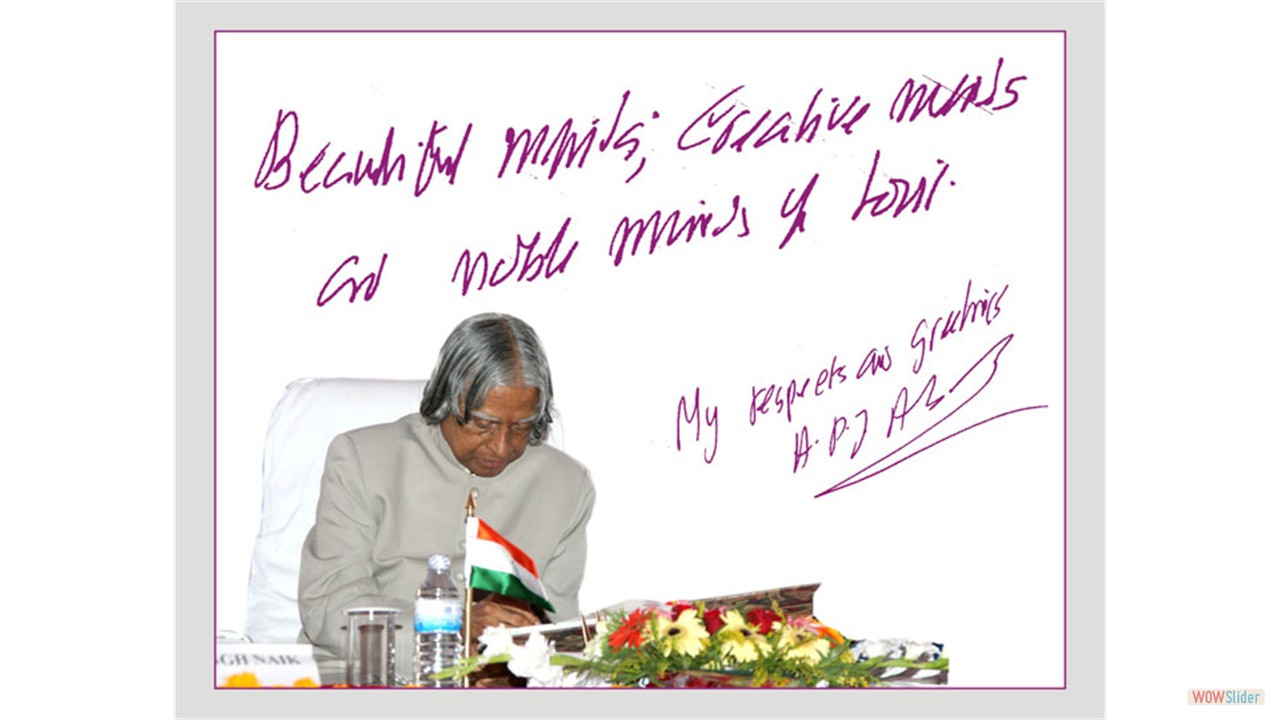 Beautiful minds; Creative minds
and noble minds of
My respects and Greetings
A.P.J
GH NAIK
WOWSlider